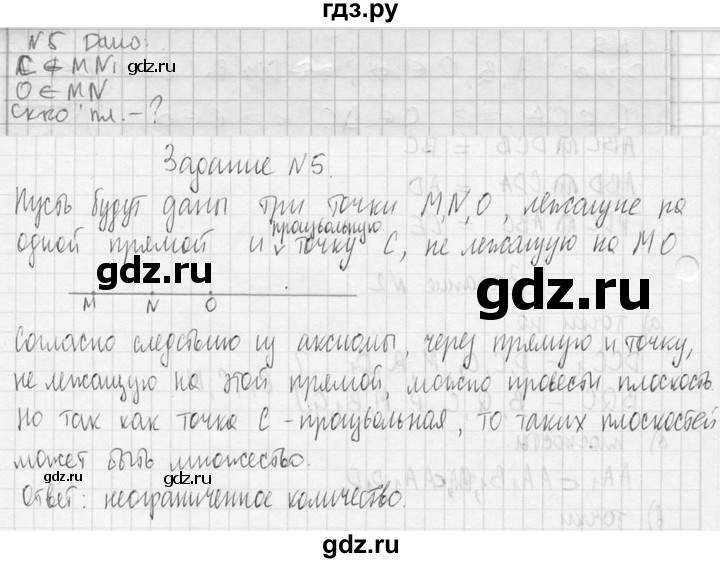 гдз.ру
N5 Дано:
C ∉ MN;
O ∈ MN
Ск-ко пл. - ?
Задание N5.
Пусть будут даны три точки M, N, O, лежащие на
произвольную
одной прямой и ∨ точку C, не лежащую на MO
gdz.ru
gdz.ru
M N O
Согласно следствию из аксиомы, через прямую и точку,
не лежащую на этой прямой, можно провести плоскость.
Но так как точка C - произвольная, то таких плоскостей
может быть множество.
gdz.ru
gdz.ru
Ответ: неограниченное количество.
gdz.ru